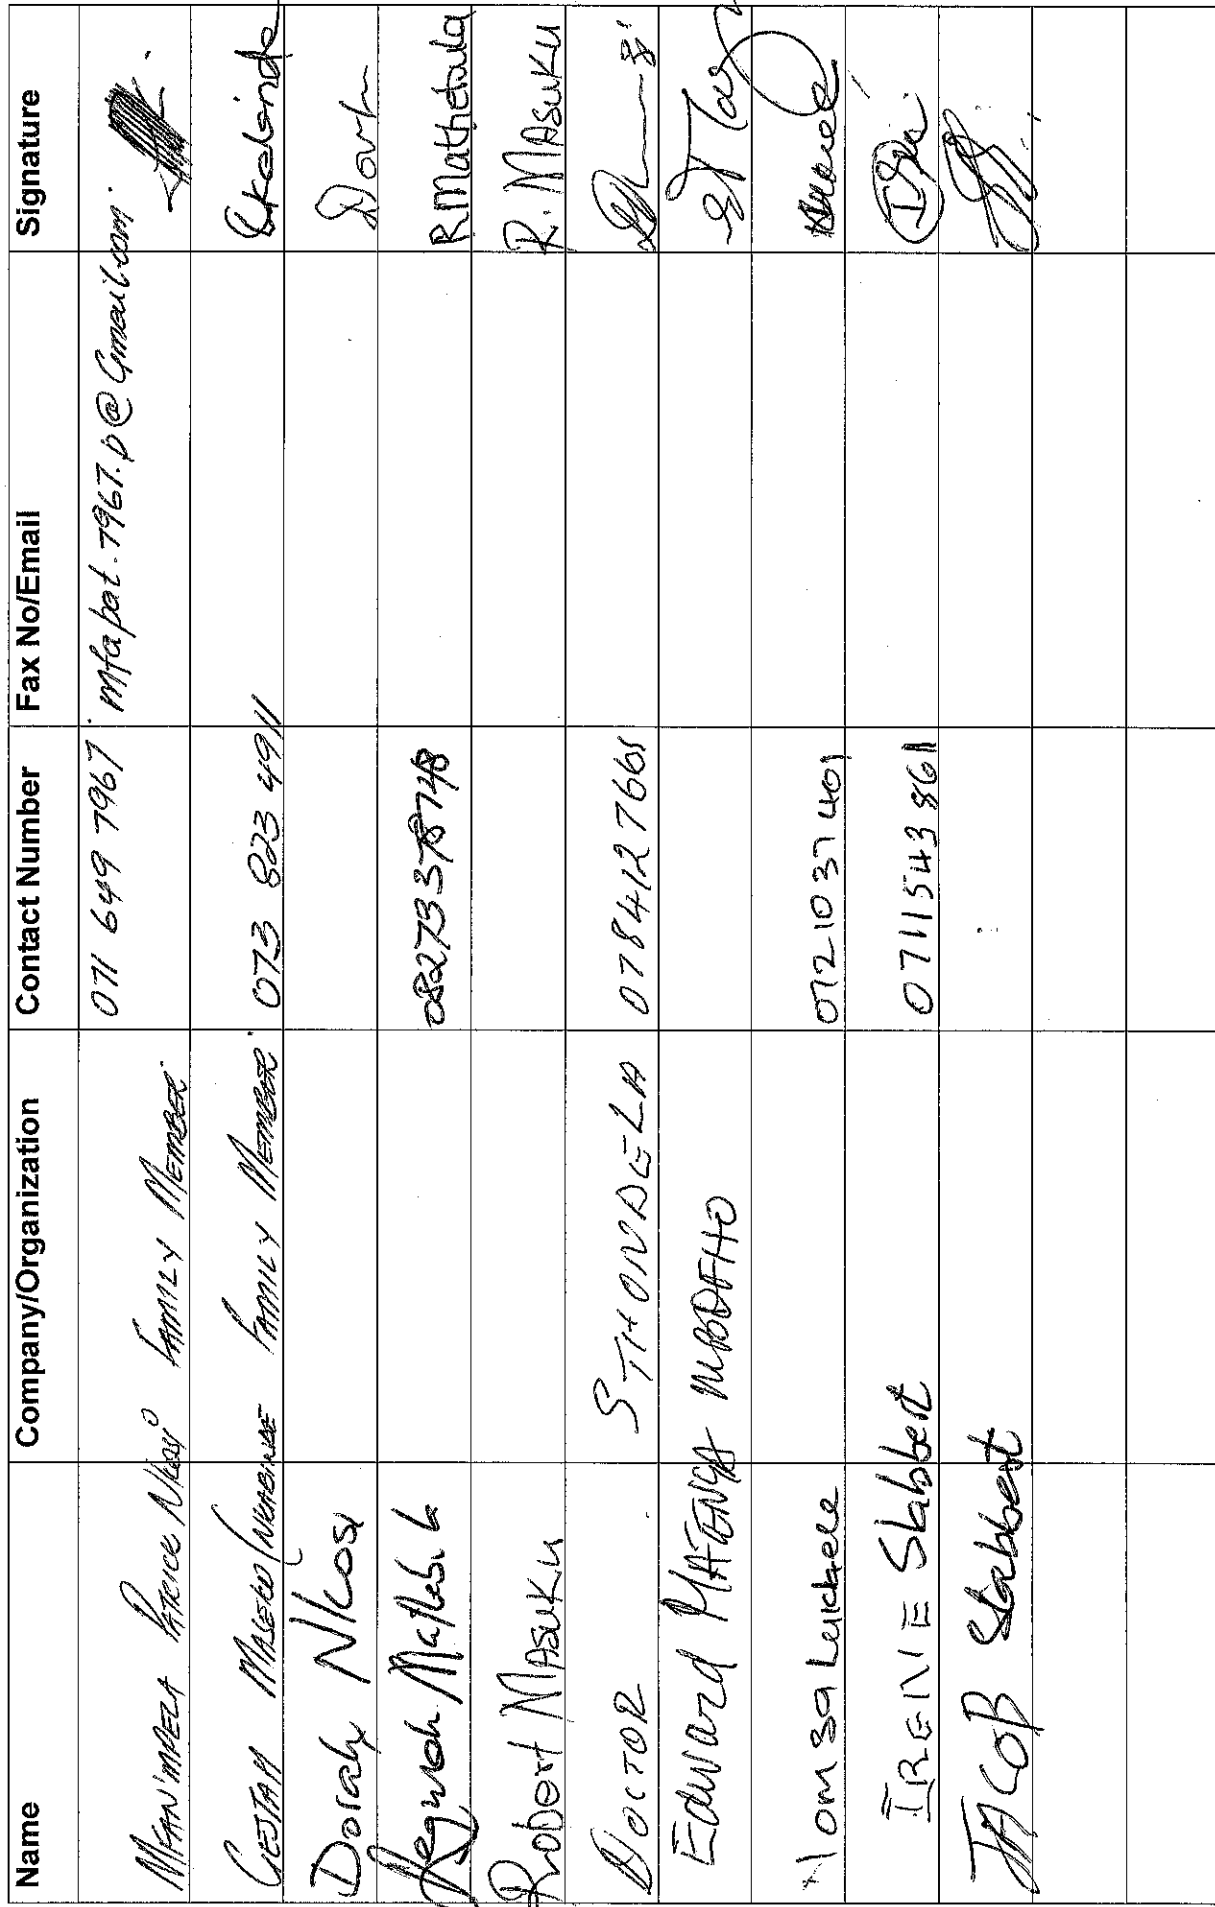 Name Company/Organization Contact Number Fax No/Email Signature
PATRICE Nkosi FAMILY MEMBER 071 649 7967 mfapat.7967.p@Gmail.com
MASEKO/NKABINDE FAMILY MEMBER 073 823 4911
Dorah Nkosi Dorh
08273378748 RMathebula
Robert MASUKU R. MASUKU
DOCTOR STHONDELA 0784127665
Edward MADFHO
0721037401
IRENE Slabbert 0711543861
JACOB Slabbert